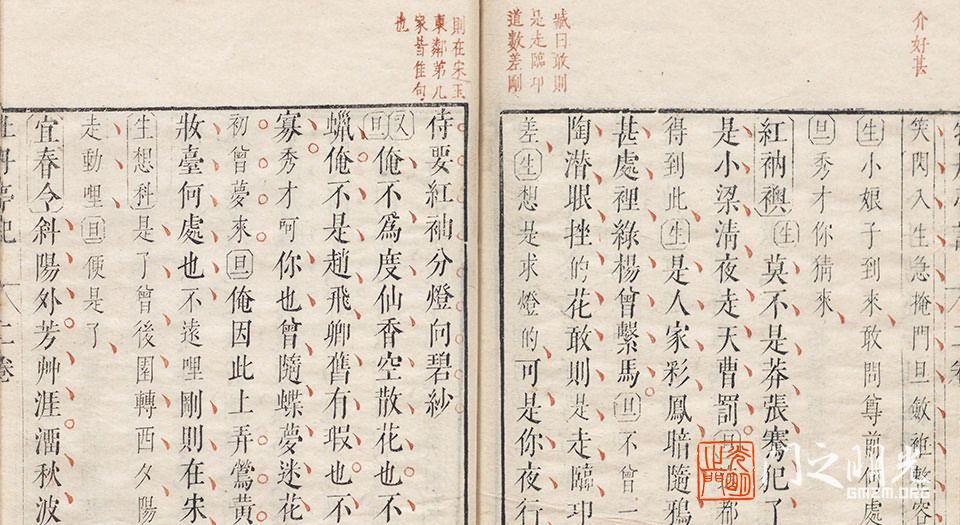 介好甚
臧曰敢則
是走臨卭
道數差剛
則在宋玉
東鄰第几
家皆佳句
也
笑閃入生急掩門旦斂袵整容
生小娘子到來敢問尊前何處
旦秀才你猜來
紅衲襖生莫不是莽張騫犯了
是小梁清夜走天曹罰旦都
得到此生是人家彩鳳暗隨鴉
甚處裡綠楊曾繫馬旦不曾一
陶潛眼挫的花敢則是走臨卭
差生想是求燈的可是你夜行
侍要紅袖分燈向碧紗
又旦俺不爲度仙香空散花也不
蠟俺不是趙飛卿舊有瑕也不
寡秀才呵你也曾隨蝶夢迷花
初曾夢來旦俺因此上弄鶯黃
妝臺何處也不遠哩剛則在宋
生想科是了曾後園轉西夕陽
走動哩旦便是了
宜春令斜陽外芳艸涯澑秋波
牡丹亭記 二卷
光明之門
門之明光
GMZM.ORG